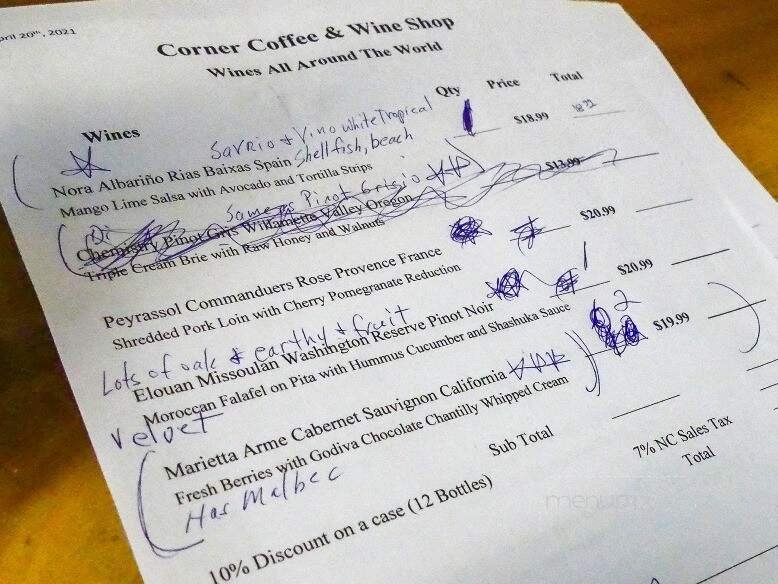 April 20th, 2021
Corner Coffee & Wine Shop
Wines All Around The World
Qty Price Total
Wines
Savrio & Vino white Tropical
Shellfish, beach
Nora Albariño Rias Baixas Spain $18.99 18 99
Mango Lime Salsa with Avocado and Tortilla Strips
Same as Pinot Grigio
Chemistry Pinot Gris Willamette Valley Oregon $13.99
Triple Cream Brie with Raw Honey and Walnuts
Peyrassol Commanduers Rose Provence France $20.99
Shredded Pork Loin with Cherry Pomegranate Reduction
Lots of oak & earthy & fruit
Elouan Missoulan Washington Reserve Pinot Noir 1 $20.99
Moroccan Falafel on Pita with Hummus Cucumber and Shashuka Sauce
velvet
Marietta Arme Cabernet Sauvignon California 2 $19.99
Fresh Berries with Godiva Chocolate Chantilly Whipped Cream
Has Malbec
Sub Total
7% NC Sales Tax
Total
10% Discount on a case (12 Bottles)